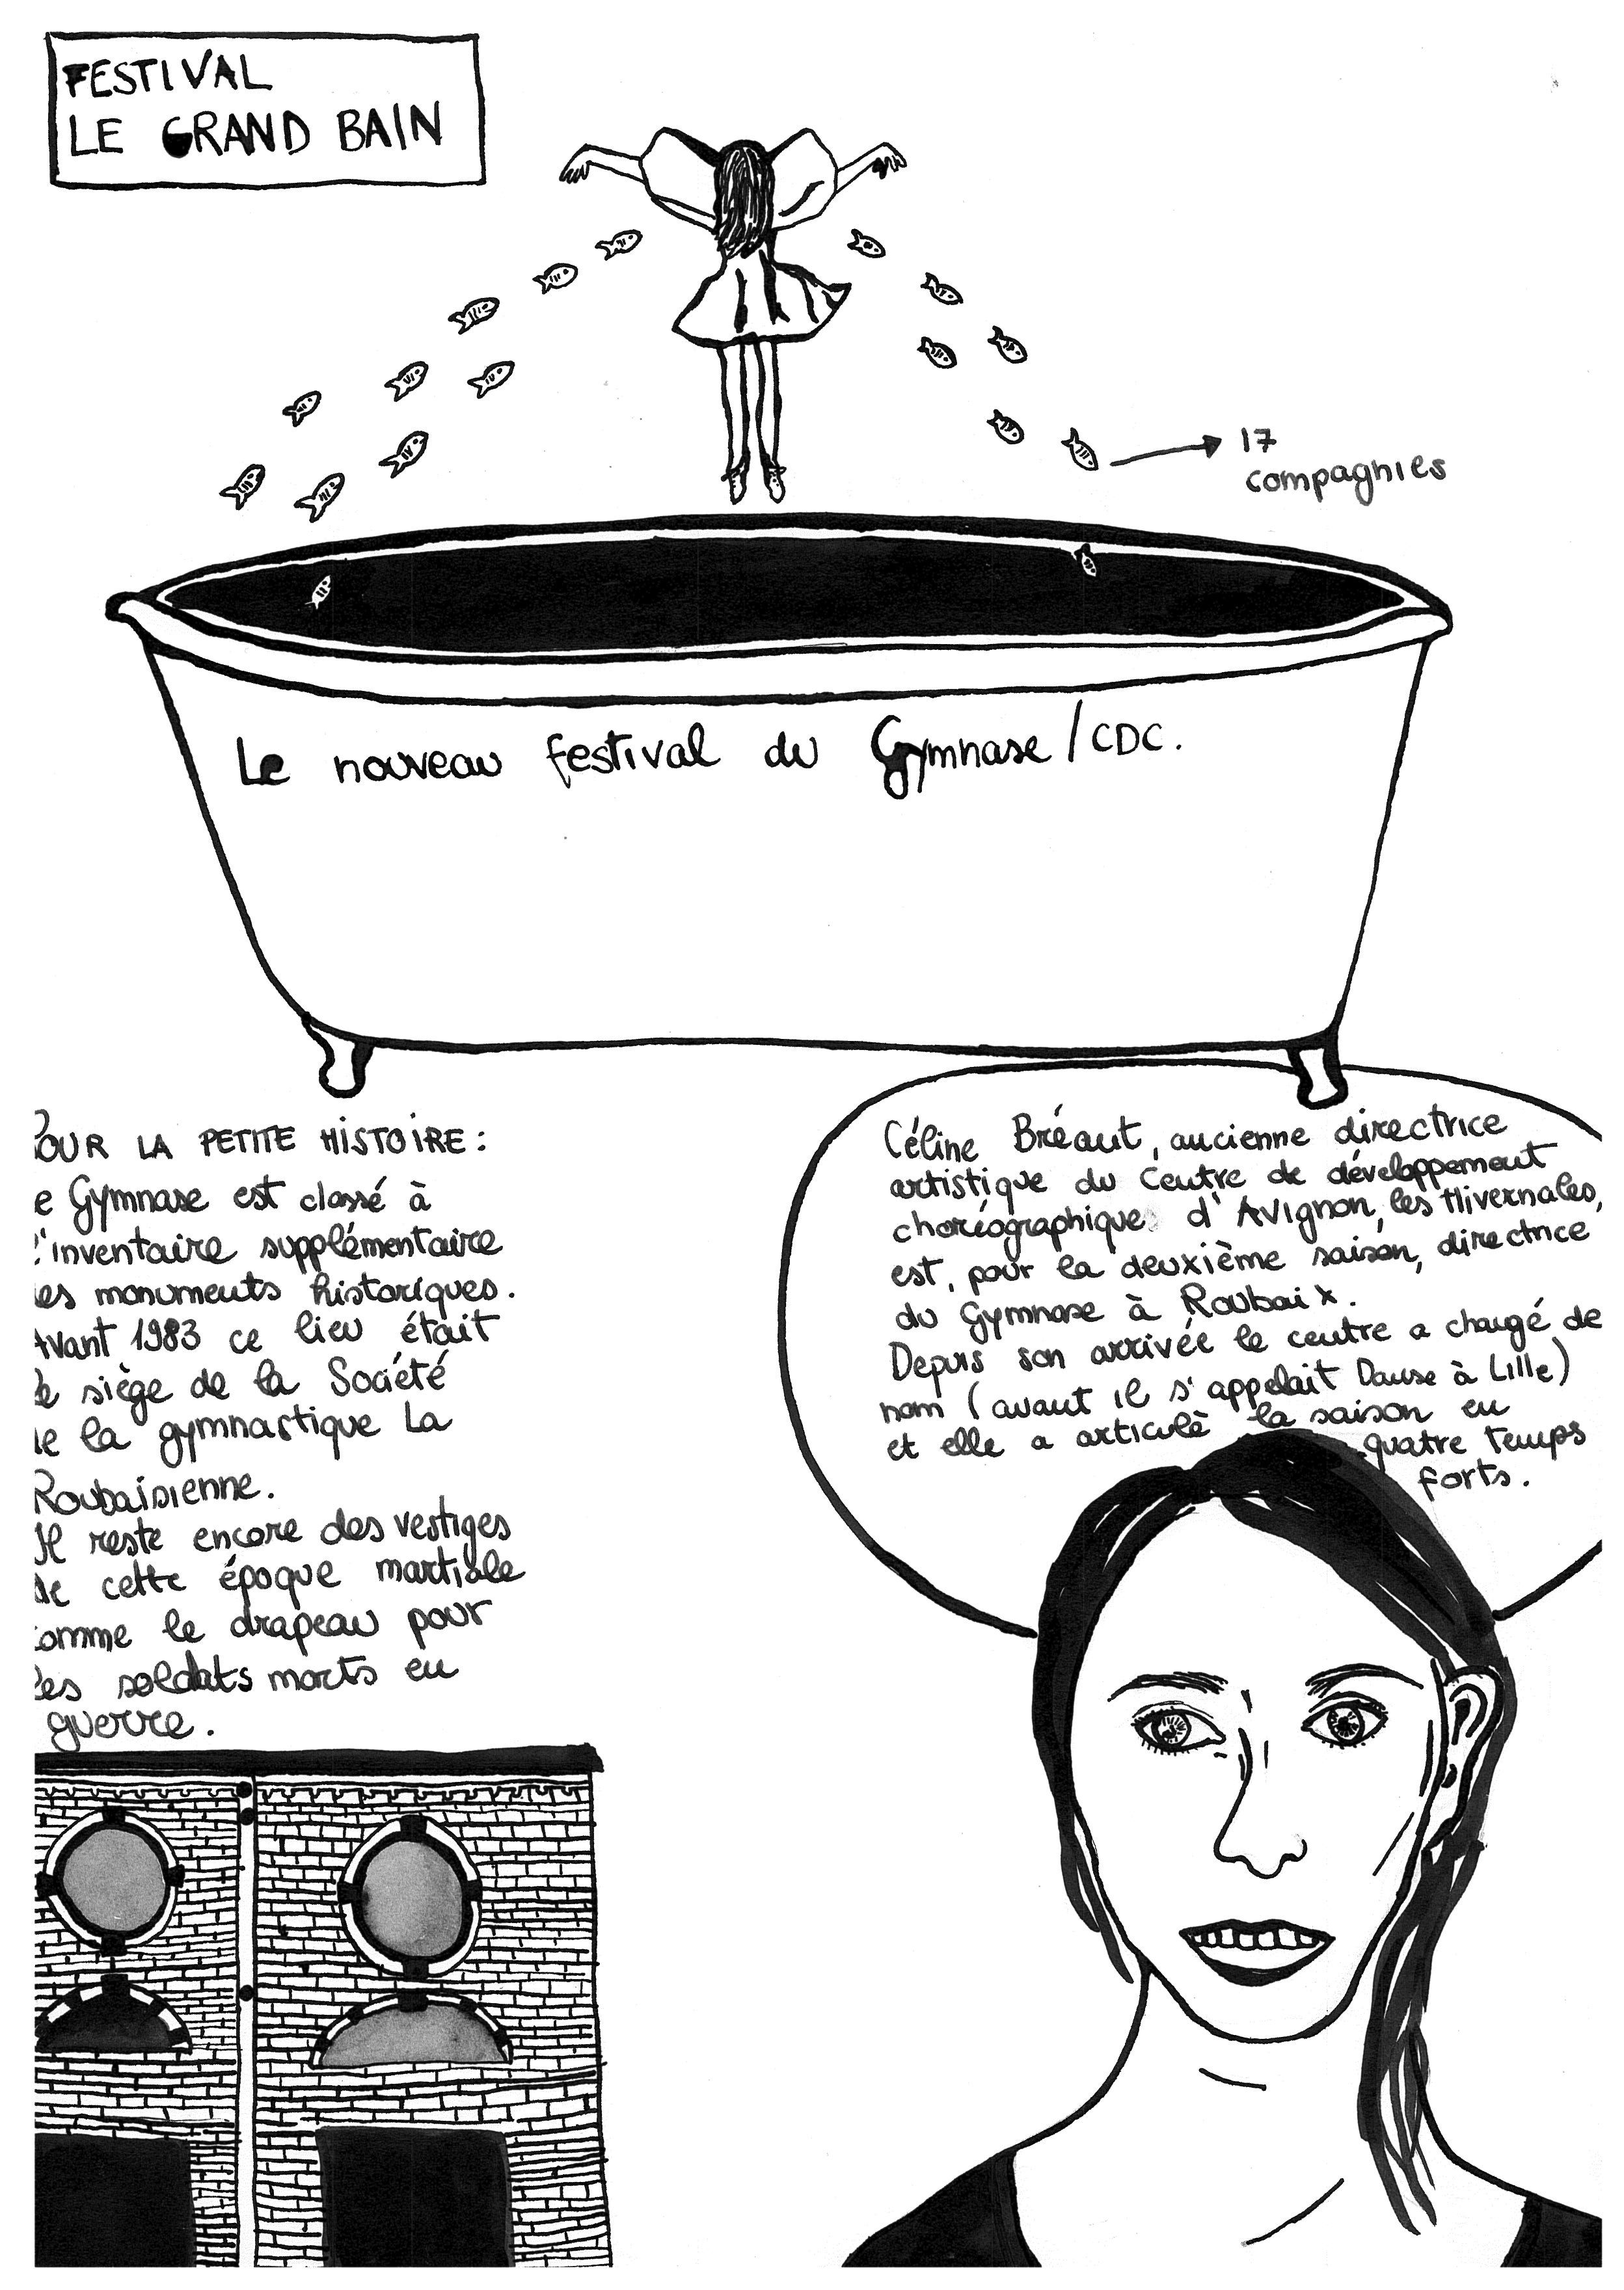 FESTIVAL
LE GRAND BAIN
17
compagnies
Le nouveau festival du Gymnase / CDC.
POUR LA PETITE HISTOIRE :
e Gymnase est classé à
l'inventaire supplémentaire
es monuments historiques.
Avant 1983 ce lieu était
le siège de la Société
e la gymnastique La
Roubaisienne.
Il reste encore des vestiges
de cette époque martiale
omme le drapeau pour
les soldats morts en
guerre.
Céline Bréant, ancienne directrice
artistique du Centre de développement
chorégraphique d'Avignon, les Hivernales,
est, pour la deuxième saison, directrice
du Gymnase à Roubaix.
Depuis son arrivée le centre a changé de
nom (avant il s'appelait Danse à Lille)
et elle a articulè la saison en
quatre temps
forts.